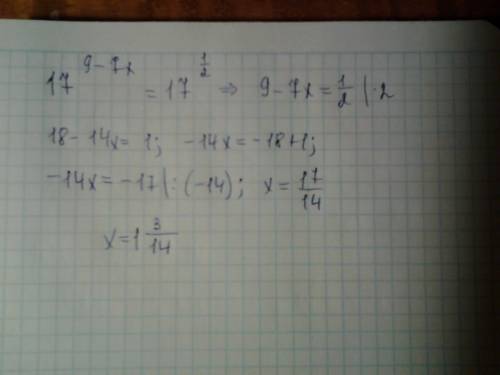 17^{9-7x} = 17^{\frac{1}{2}} ⇒ 9-7x = \frac{1}{2} |·2
18-14x = 1; -14x = -18+1;
-14x = -17 |: (-14); x = \frac{17}{14}
x = 1\frac{3}{14}